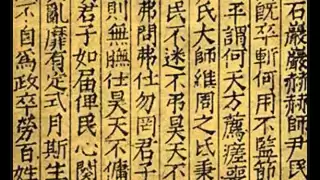 石巖巖赫赫師尹民
既卒斬何用不監節
平謂何天方薦瘥喪
氏大師維周之氐秉
民不迷不弔昊天不
弗問弗仕勿罔君子
則無膴仕昊天不傭
君子如屆俾民心闋
亂靡有定式月斯生
不自為政卒勞百姓